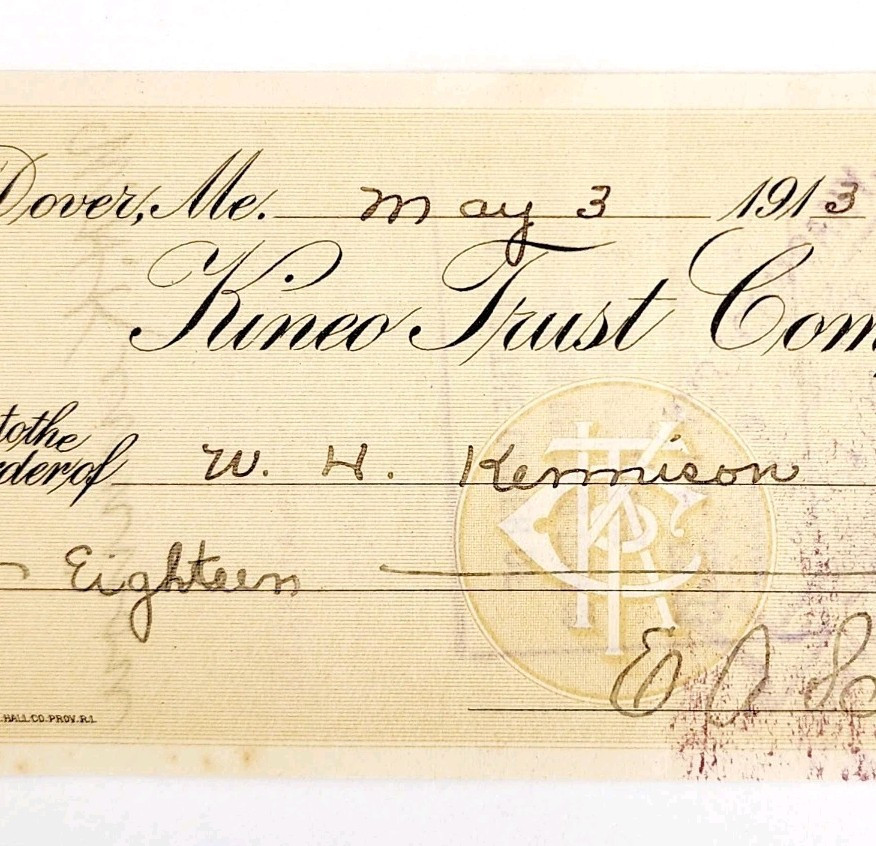 Dover, Me. May 3 1913
Kineo Trust Com
to the
rder of W. H. Kennison
Eighteen
E A
HALL CO. PROV. R.I.